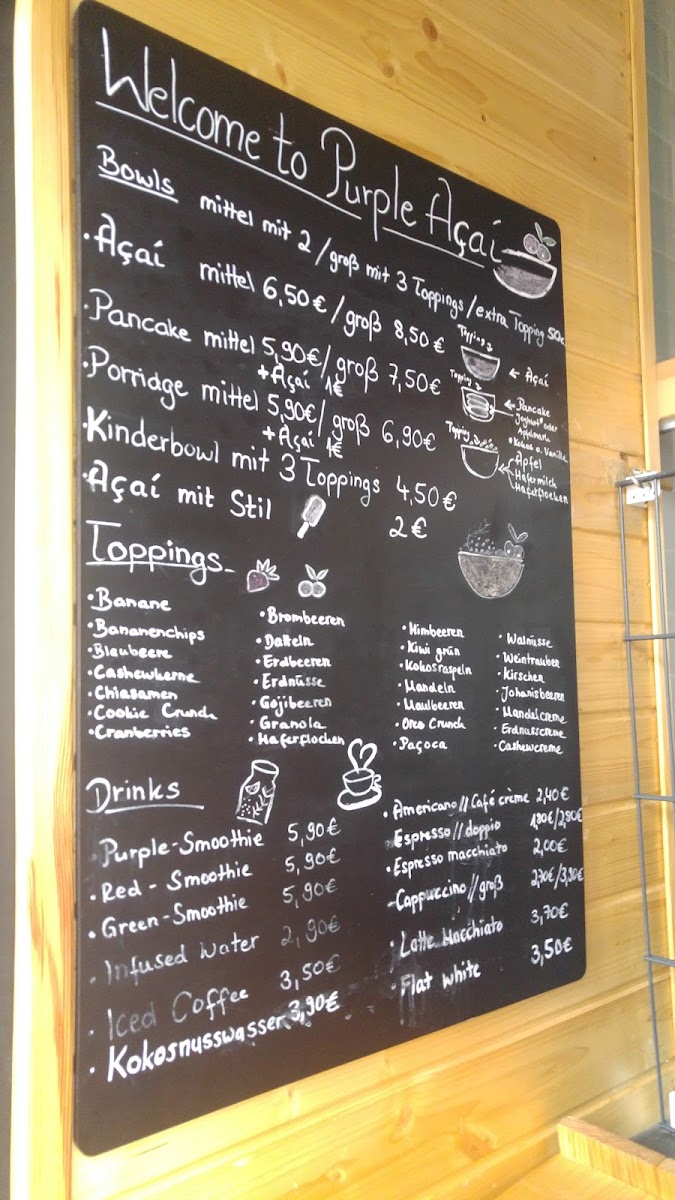 Welcome to Purple Açaí
Bowls mittel mit 2 / groß mit 3 Toppings / extra Topping 50c
• Açaí mittel 6,50€ / groß 8,50€
• Pancake mittel 5,90€ / groß 7,50€
+ Açaí 1€
• Porridge mittel 5,90€ / groß 6,90€
+ Açaí 1€
• Kinderbowl mit 3 Toppings 4,50€
• Açaí mit Stil 2€
Topping
← Açaí
Topping
← Pancake
Joghurt* oder
Apfelmark
*Kokos o. Vanille
Topping
Apfel
Hafermilch
Haferflocken
Toppings
• Banane
• Bananenchips
• Blaubeere
• Cashewkerne
• Chiasamen
• Cookie Crunch
• Cranberries
• Brombeeren
• Datteln
• Erdbeeren
• Erdnüsse
• Gojibeeren
• Granola
• Haferflocken
• Himbeeren
• Kiwi grün
• Kokosraspeln
• Mandeln
• Maulbeeren
• Oreo Crunch
• Paçoca
• Walnüsse
• Weintrauben
• Kirschen
• Johanisbeeren
• Mandelcreme
• Erdnusscreme
• Cashewcreme
Drinks
• Purple-Smoothie 5,90€
• Red - Smoothie 5,90€
• Green-Smoothie 5,90€
• Infused Water 2,90€
• Iced Coffee 3,50€
• Kokosnusswasser 3,90€
• Americano // Café crème 2,40€
Espresso // doppio 1,90€/2,90€
• Espresso macchiato 2,00€
- Cappuccino // groß 2,70€/3,90€
• Latte Macchiato 3,70€
• Flat white 3,50€